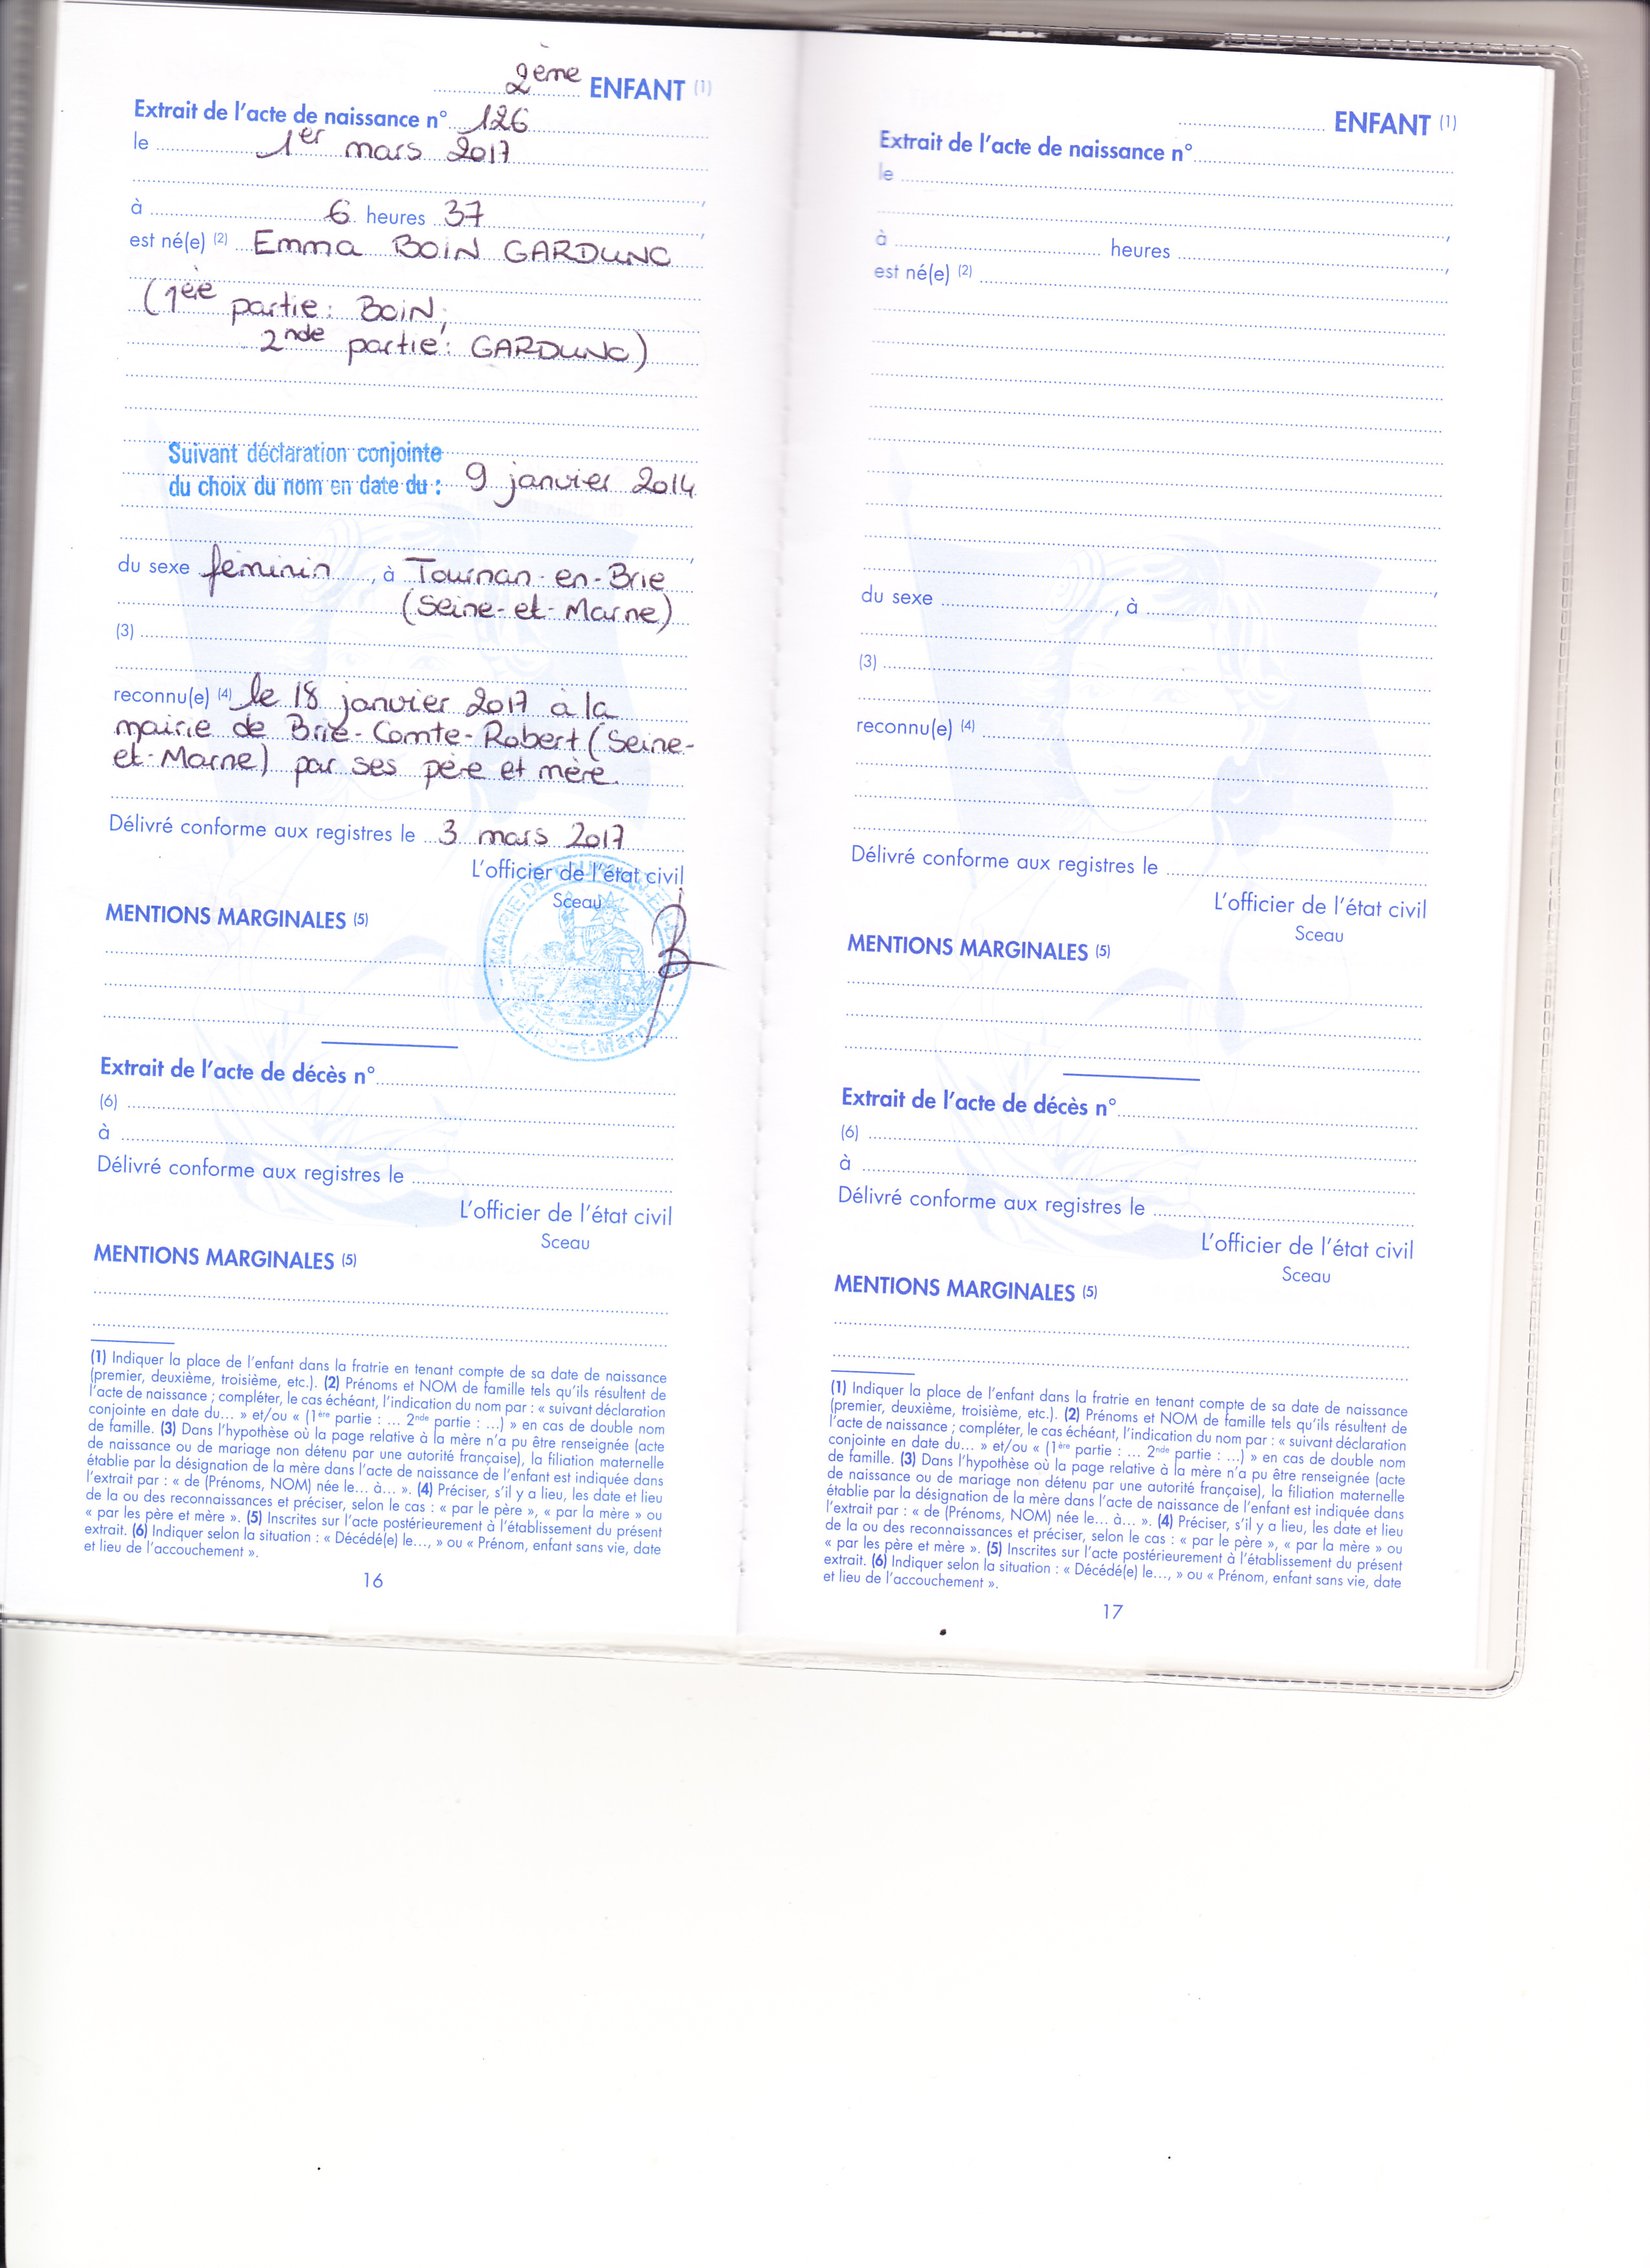 2ème ENFANT (1)
Extrait de l'acte de naissance n° 126
le 1er mars 2017
à 6 heures 37
est né(e) (2) Emma BOIN GARDUNO
(1ère partie : BOIN;
2nde partie : GARDUNO)
Suivant déclaration conjointe
du choix du nom en date du : 9 janvier 2014
du sexe féminin, à Tournan-en-Brie
(Seine-et-Marne)
(3)
reconnu(e) (4) le 18 janvier 2017 à la
mairie de Brie-Comte-Robert (Seine-
et-Marne) par ses père et mère.
Délivré conforme aux registres le 3 mars 2017
L'officier de l'état civil
Sceau
MENTIONS MARGINALES (5)
Extrait de l'acte de décès n°
(6)
à
Délivré conforme aux registres le
L'officier de l'état civil
Sceau
MENTIONS MARGINALES (5)
(1) Indiquer la place de l'enfant dans la fratrie en tenant compte de sa date de naissance
(premier, deuxième, troisième, etc.). (2) Prénoms et NOM de famille tels qu'ils résultent de
l'acte de naissance ; compléter, le cas échéant, l'indication du nom par : « suivant déclaration
conjointe en date du... » et/ou « (1ère partie : ... 2nde partie : ...) » en cas de double nom
de famille. (3) Dans l'hypothèse où la page relative à la mère n'a pu être renseignée (acte
de naissance ou de mariage non détenu par une autorité française), la filiation maternelle
établie par la désignation de la mère dans l'acte de naissance de l'enfant est indiquée dans
l'extrait par : « de (Prénoms, NOM) née le... à... ». (4) Préciser, s'il y a lieu, les date et lieu
de la ou des reconnaissances et préciser, selon le cas : « par le père », « par la mère » ou
« par les père et mère ». (5) Inscrites sur l'acte postérieurement à l'établissement du présent
extrait. (6) Indiquer selon la situation : « Décédé(e) le..., » ou « Prénom, enfant sans vie, date
et lieu de l'accouchement ».
16
ENFANT (1)
Extrait de l'acte de naissance n°
le
à heures
est né(e) (2)
du sexe , à
(3)
reconnu(e) (4)
Délivré conforme aux registres le
L'officier de l'état civil
Sceau
MENTIONS MARGINALES (5)
Extrait de l'acte de décès n°
(6)
à
Délivré conforme aux registres le
L'officier de l'état civil
Sceau
MENTIONS MARGINALES (5)
(1) Indiquer la place de l'enfant dans la fratrie en tenant compte de sa date de naissance
(premier, deuxième, troisième, etc.). (2) Prénoms et NOM de famille tels qu'ils résultent de
l'acte de naissance ; compléter, le cas échéant, l'indication du nom par : « suivant déclaration
conjointe en date du... » et/ou « (1ère partie : ... 2nde partie : ...) » en cas de double nom
de famille. (3) Dans l'hypothèse où la page relative à la mère n'a pu être renseignée (acte
de naissance ou de mariage non détenu par une autorité française), la filiation maternelle
établie par la désignation de la mère dans l'acte de naissance de l'enfant est indiquée dans
l'extrait par : « de (Prénoms, NOM) née le... à... ». (4) Préciser, s'il y a lieu, les date et lieu
de la ou des reconnaissances et préciser, selon le cas : « par le père », « par la mère » ou
« par les père et mère ». (5) Inscrites sur l'acte postérieurement à l'établissement du présent
extrait. (6) Indiquer selon la situation : « Décédé(e) le..., » ou « Prénom, enfant sans vie, date
et lieu de l'accouchement ».
17